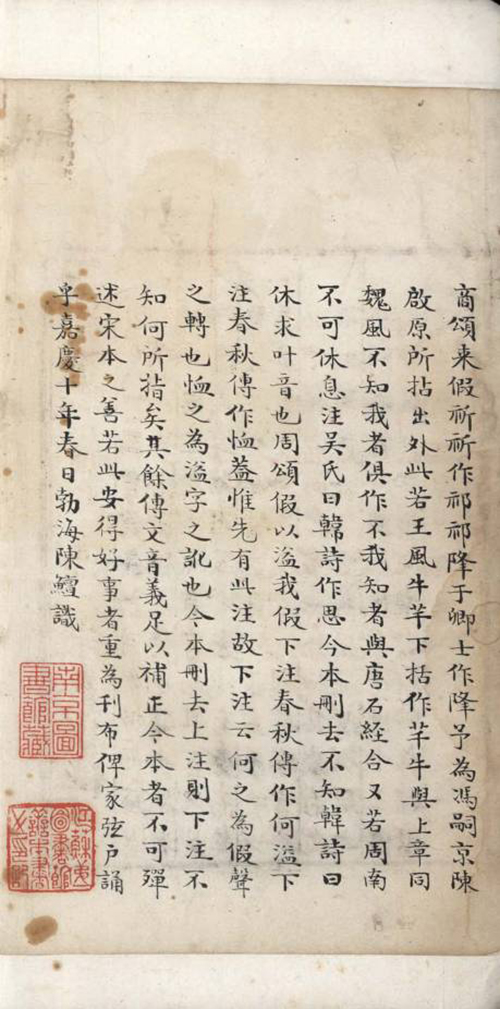 商頌來假祈祈作祁祁降于卿士作降予為馮嗣京陳
啟原所拈出外此若王風牛羊下括作羊牛與上章同
魏風不知我者俱作不我知者與唐石經合又若周南
不可休息注吳氏曰韓詩作思今本刪去不知韓詩曰
休求叶音也周頌假以溢我假下注春秋傳作何溢下
注春秋傳作恤葢惟先有此注故下注云何之為假聲
之轉也恤之為溢字之訛也今本刪去上注則下注不
知何所指矣其餘傳文音義足以補正今本者不可殫
述宋本之善若此安得好事者重為刊布俾家弦户誦
乎嘉慶十年春日勃海陳鱣識
南京圖
書館藏
江蘇第一
圖書館
善本書
之印記